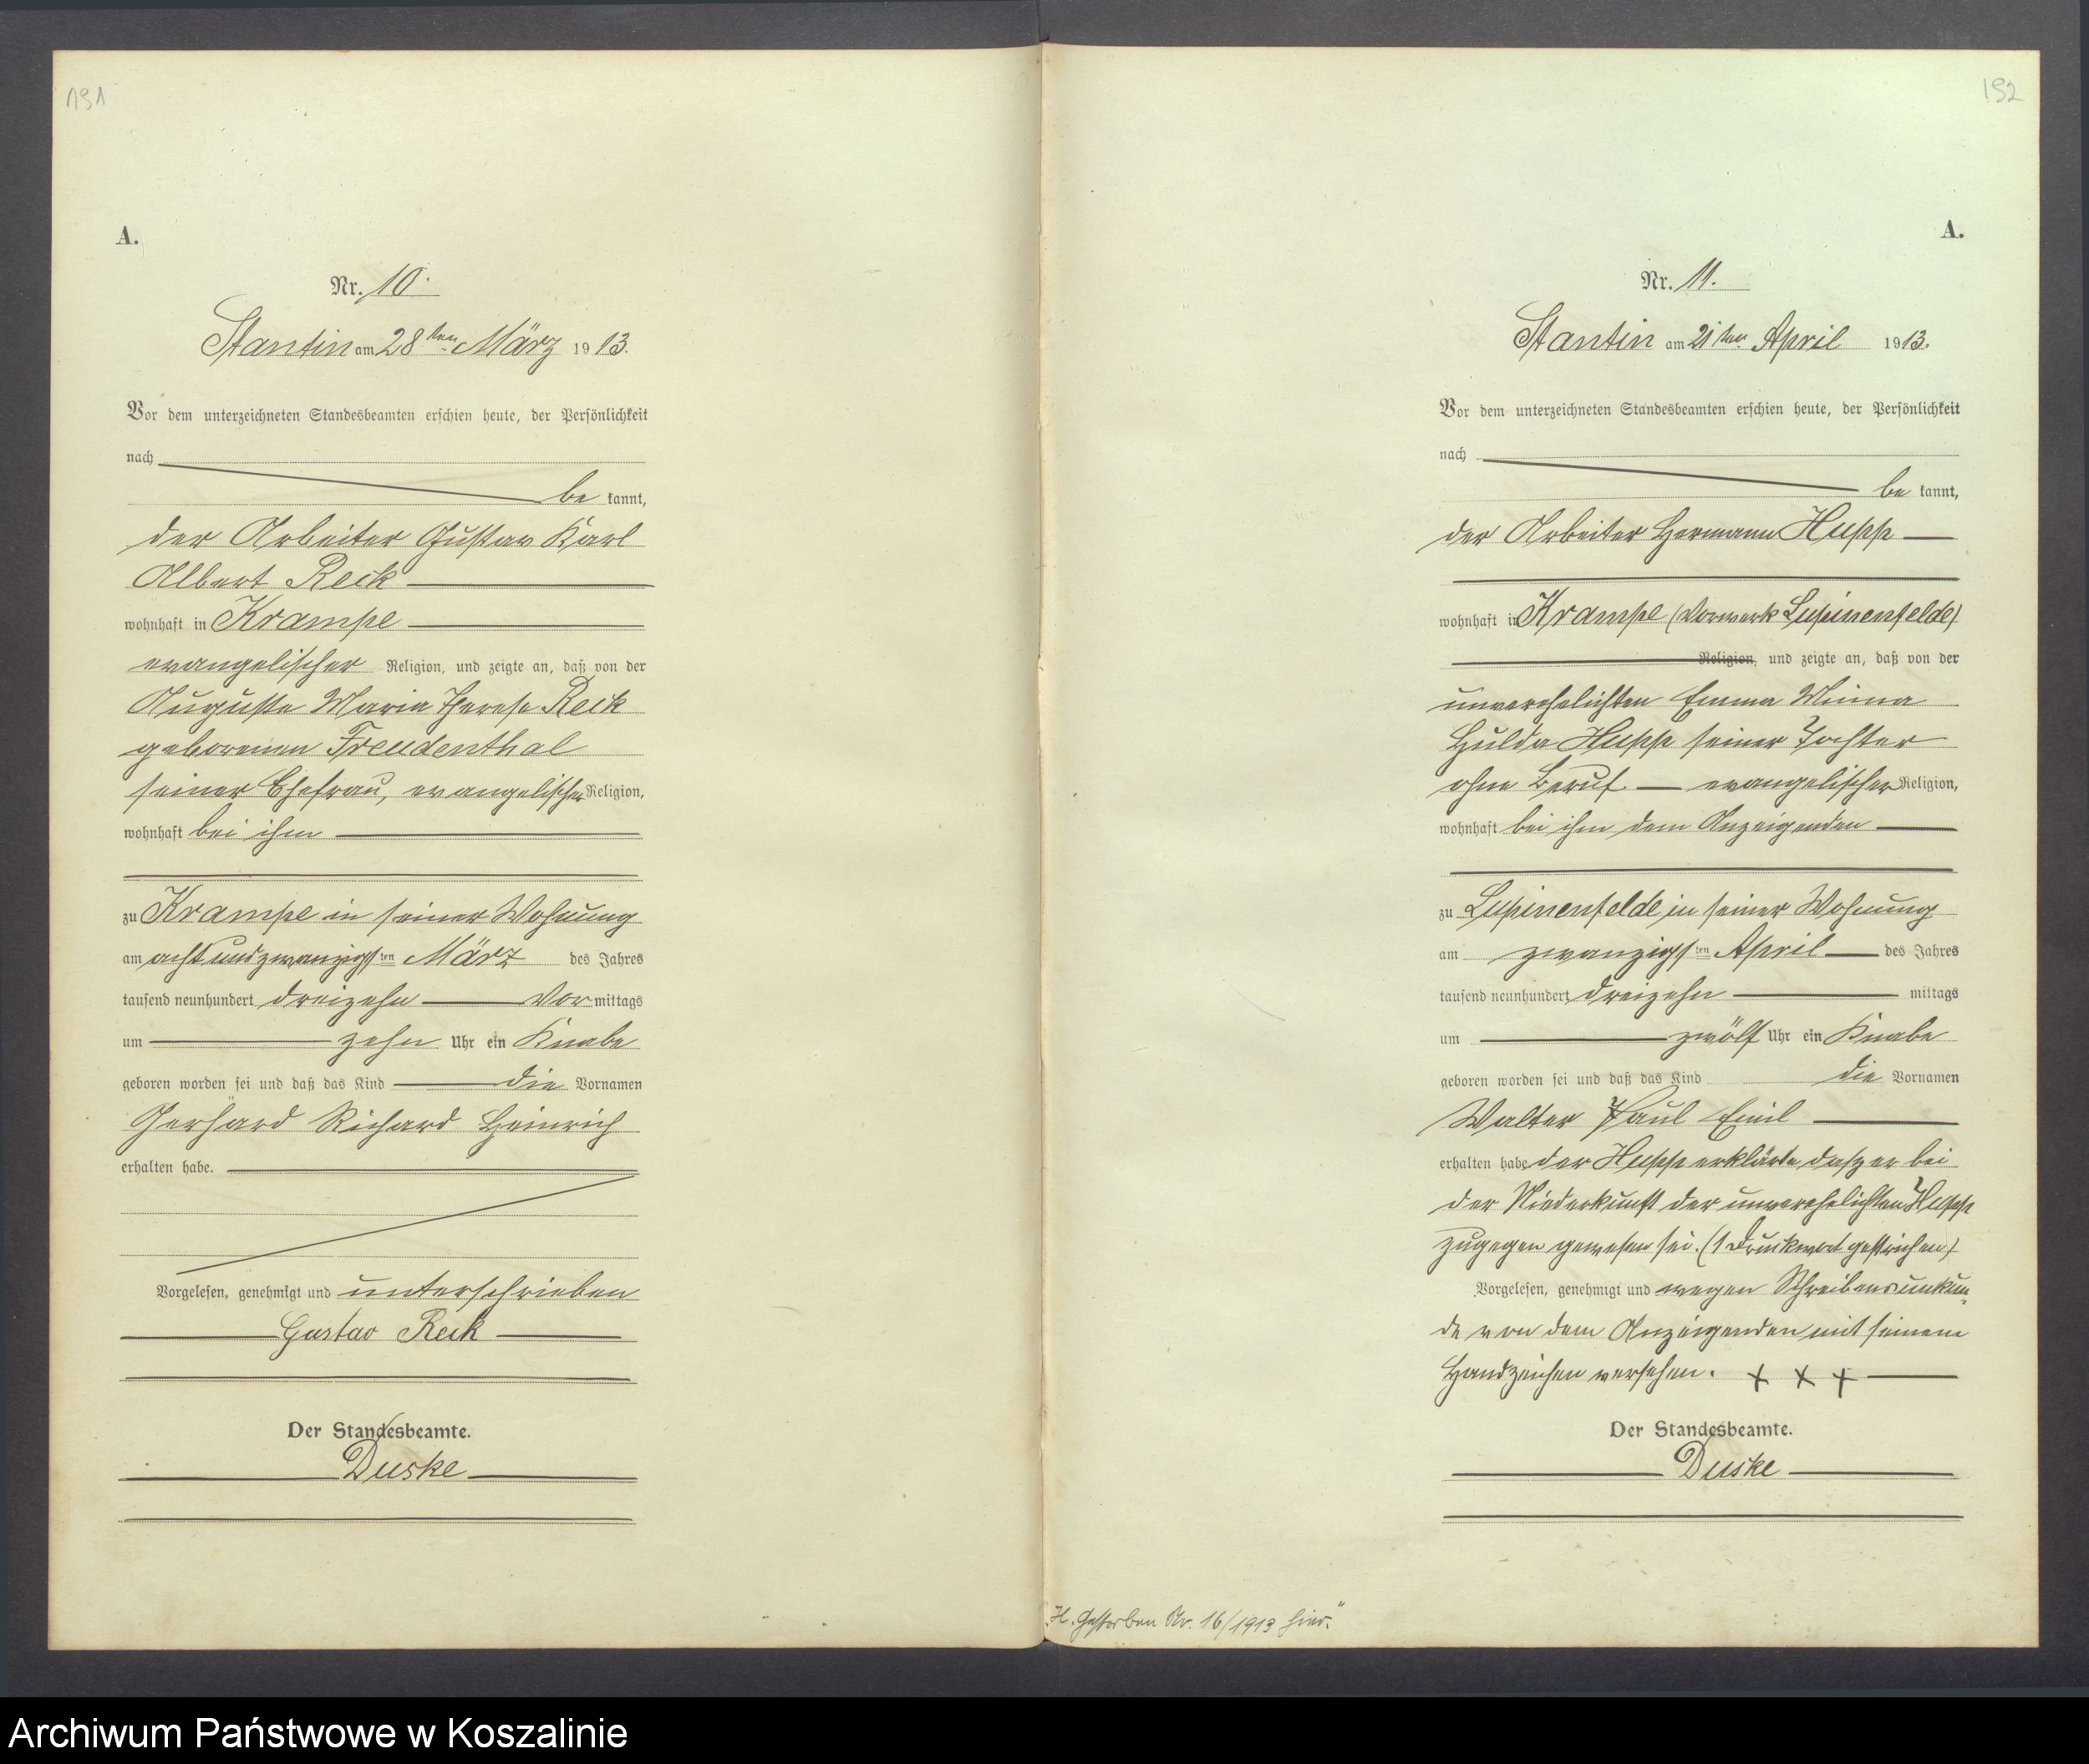 191
A.
Nr. 10.
Stantin am 28ten März 1913.
Vor dem unterzeichneten Standesbeamten erschien heute, der Persönlichkeit
nach
be kannt,
der Arbeiter Gustav Karl
Albert Reck
wohnhaft in Krampe
evangelischer Religion, und zeigte an, daß von der
Auguste Maria Therese Reck
geborenen Freudenthal
seiner Ehefrau, evangelischer Religion,
wohnhaft bei ihm
zu Krampe in seiner Wohnung
am achtundzwanzigsten März des Jahres
tausend neunhundert dreizehn Vor mittags
um zehn Uhr ein Knabe
geboren worden sei und daß das Kind die Vornamen
Gerhard Richard Heinrich
erhalten habe.
Vorgelesen, genehmigt und unterschrieben
Gustav Reck
Der Standesbeamte.
Duske
192
A.
Nr. 11.
Stantin am 21ten April 1913.
Vor dem unterzeichneten Standesbeamten erschien heute, der Persönlichkeit
nach
be kannt,
der Arbeiter Hermann Hupp
wohnhaft in Krampe (Vorwerk Lupinenfelde)
Religion, und zeigte an, daß von der
unverehelichten Emma Minna
Hulda Hupp seiner Tochter
ohne Beruf evangelischer Religion,
wohnhaft bei ihm dem Anzeigenden
zu Lupinenfelde in seiner Wohnung
am zwanzigsten April des Jahres
tausend neunhundert dreizehn mittags
um zwölf Uhr ein Knabe
geboren worden sei und daß das Kind die Vornamen
Walter Paul Emil
erhalten habe der Hupp erklärte, daß er bei
der Niederkunft der unverehelichten Hupp
zugegen gewesen sei. (1 Druckwort gestrichen)
Vorgelesen, genehmigt und wegen Schreibensunkun-
de von dem Anzeigenden mit seinem
Handzeichen versehen. + + +
Der Standesbeamte.
Duske
"H. Gestorben Nr. 16/1913 hier."
Archiwum Państwowe w Koszalinie